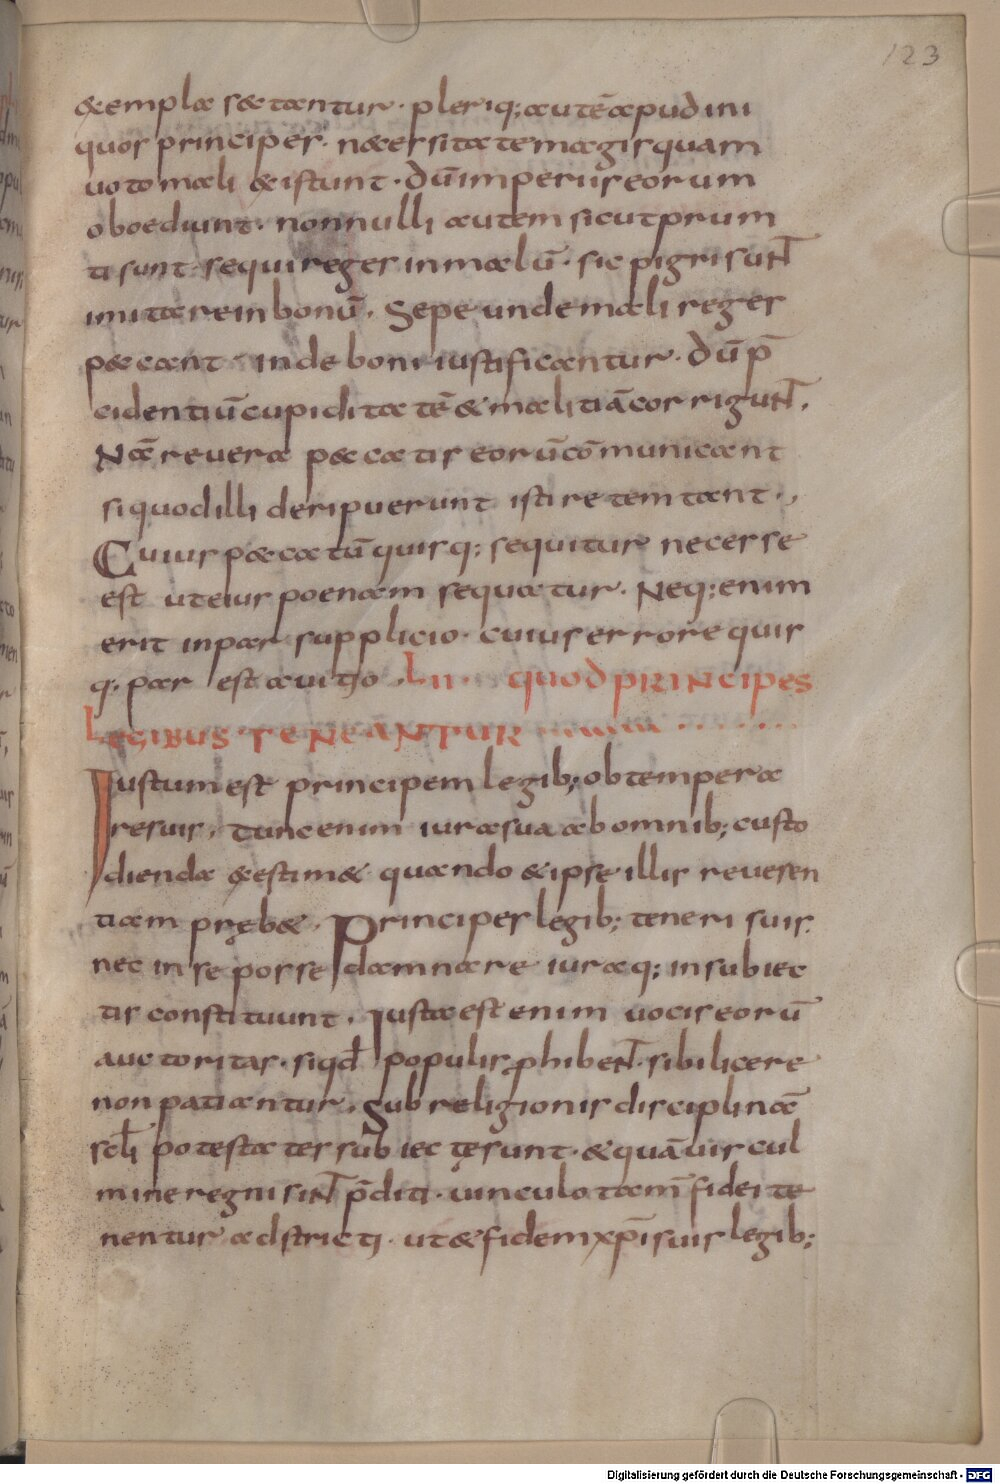 123
&empla s&tantur· pleriq; autē apud ini
quos principes· necessitate magis quam
uoto mali existunt· dū imperiis eorum
oboediunt· nonnulli autem sicut prum
ti sunt sequi reges in malū· sic pigri suNT
imitare in bonū· Sepe unde mali reges
peccant· inde boni iustificantur· dū p̄
cidentiū cupiditatē & malitiā corriguNT·
Nā reuera peccatis eorū cōmunicant
si quod illi deripuerunt isti retemtant·,
Cuius peccatū quisq; sequitur necesse
est ut eius poenam sequatur· Neq; enim
erit inpar supplicio· cuius errore quis
q· par est a uitio· LII· quod PRINCIPES
LEGIBUS TENEANTUR
Iustum est principem legib; obtempera
re suis· tunc enim iura sua ab omnib; custo
dienda &estim& quando & ipse illis reueren
tiam pręb&· Principes legib; teneri suis·
nec in se posse damnare iura q; in subiec
tis constituunt· Iusta est enim uocis eorū
auctoritas· si qđ populis ꝓhibeNT· sibi licere
non patiantur· Sub religionis disciplinā
scłi potestates subiectę sunt· & quāuis cul
mine regni siNT p̄diti· uinculo tam̄ fidei te
nentur adstricti· ut & fidem xp̄i suis legib;
Digitalisierung gefördert durch die Deutsche Forschungsgemeinschaft - DFG